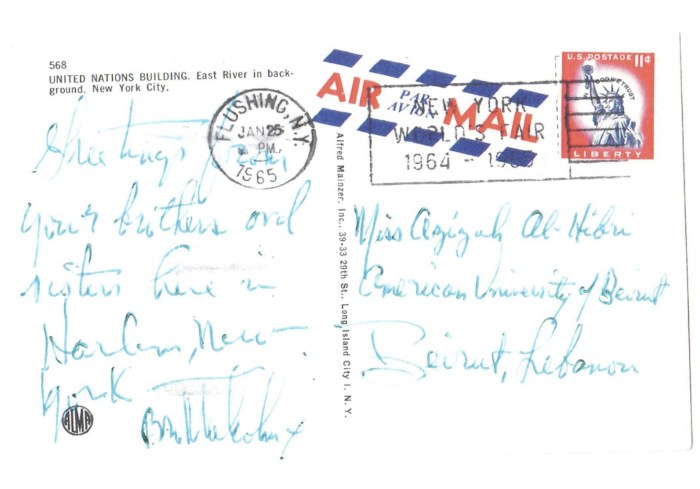 568
UNITED NATIONS BUILDING. East River in back-
ground. New York City.
Greetings from
your brothers and
sisters here in
Harlem, New
York
Bro Malcolm X
ALMA
FLUSHING, N.Y.
JAN 25
PM
1965
AIR MAIL
PAR
AVION
NEW YORK
WORLD'S FAIR
1964 - 1965
U.S. POSTAGE 11¢
IN GOD WE TRUST
LIBERTY
Alfred Mainzer, Inc., 39-33 29th St., Long Island City 1, N. Y.
Miss Azizah Al-Hibri
American University of Beirut
Beirut, Lebanon